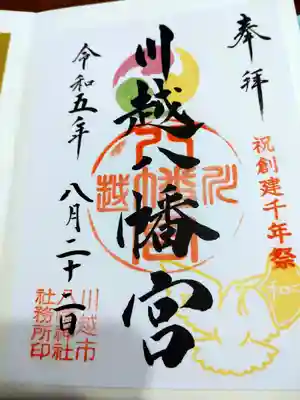 奉拝
祝創建千年祭
川越八幡宮
令和五年
八月二十八日
川越市
八幡神社
社務所印